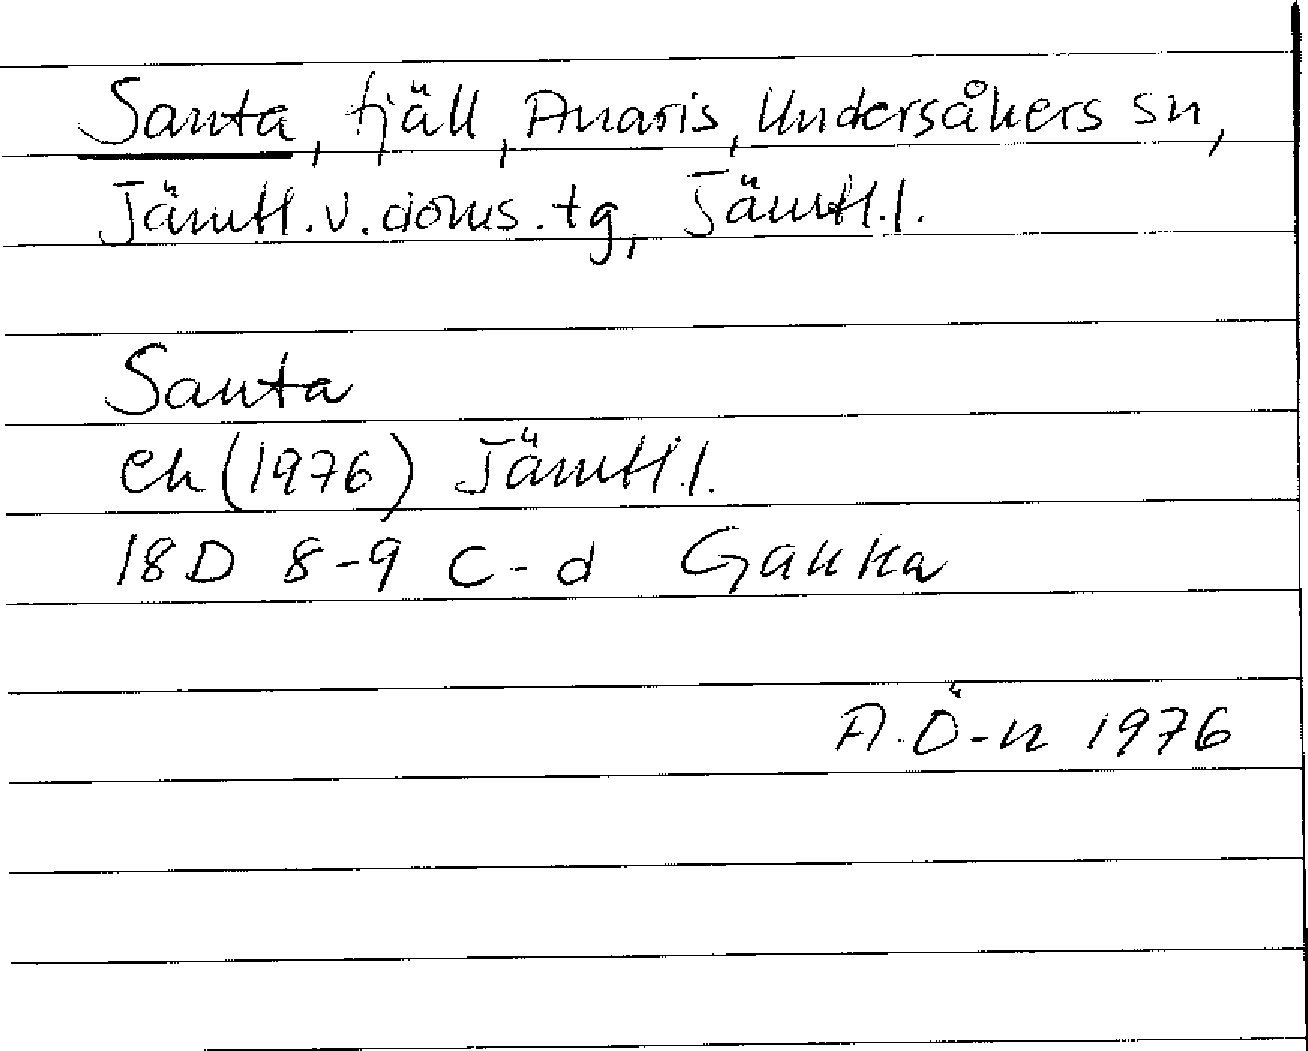 Santa, fjäll, Anaris, Undersåkers sn,
Jämtl. v. doms. tg, Jämtl. l.
Santa
ek (1976) Jämtl. l.
18D 8-9 c-d Gakka
A. Ö-n 1976